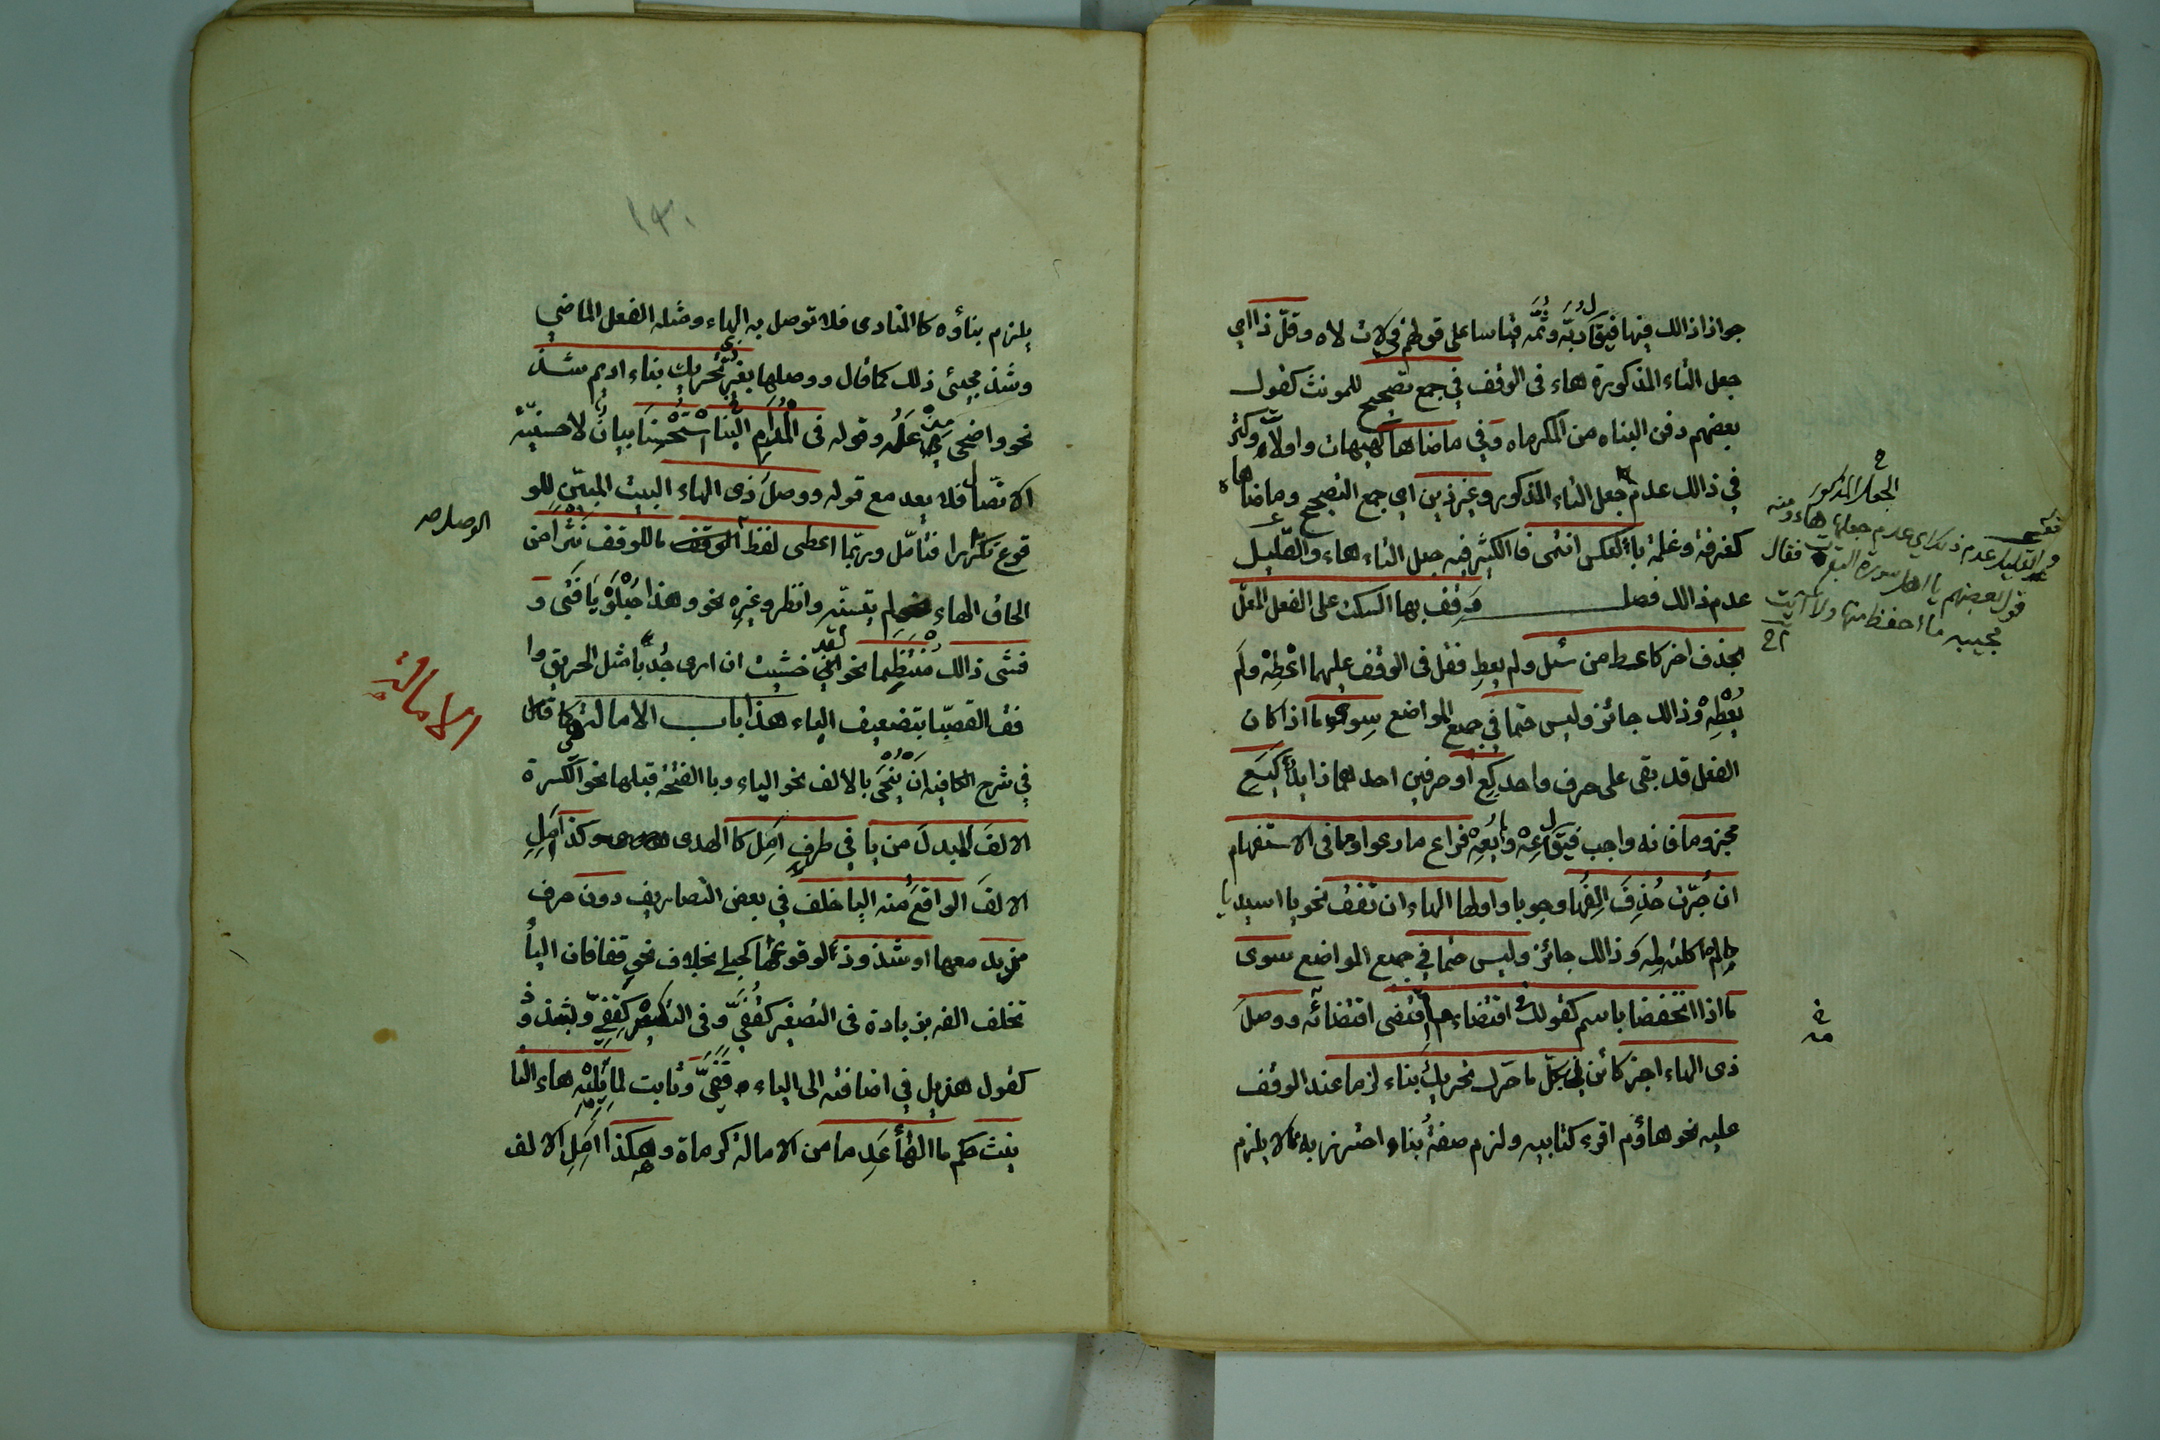 جواز ذالك فيها فيقال ربّه وثمّه قياسا على قولهم في لات لاه وقلّ ذا اي
جعل التاء المذكورة هاء فى الوقف في جمع تصحيح للمونث كقول
بعضهم دفن البناه من المكرماه وفي ما ضاهاه كهيهات واولاه وكثر
في ذالك عدم جعل التاء المذكور وغير ذين اي جمع التصحيح وما ضاهاه
كغرفة وغلمة بالعكس انتمى فالكثير فيه جعل التاء هاء والقليل
عدم ذالك فصل وقف بها السكت على الفعل المعلّ
بحذف اخر كاعط من سئل ولم يعط فقل فى الوقف عليهما اعطه ولم
يعطه وذالك جائز وليس حتما في جميع المواضع سوى ما اذا كان
الفعل قد بقى على حرف واحد كع او حرفين احدهما زايد كيع
مجزوما فانه واجب فيقال عه ولم يعه فراع ما رعوا وما فى الاستفهام
ان جرّت حذف الفها وجوبا واولها الهاء ان تقف نحو يا اسيديا
لم اكلته لمه وذالك جائز وليس حتما في جميع المواضع سوى
ما اذا انخفضا باسم كقولك اقتضاء م اقتضى اقتضائه ووصل
ذى الهاء اجز كائن بكلّ ما حرّك تحريك بناء لزما عند الوقف
عليه نحو هاؤم اقرءُ كتابيه ولزم صفة بناء احترز به مما لا يلزم
الجعل المذكور
فقيم
والقليل عدم ذلك اي عدم جعلها هاء ومنه
قول بعضهم يا اهل سورة البقرت فقال
مجيبه ما احفظ منها ولا آيت
١٣٠
يلزم بناؤه كالمنادى فلا توصل به الهاء ومثله الفعل الماضي
وشذ مجيئ ذلك كما قال ووصلها بغير تحريك بناء اديم شذ
نحو واضحى من عله وقوله فى المدام البنا استحسنا بيان لاحسنيّة
الاتصال فلا يعد مع قوله ووصل ذى الهاء البيت المبيّن للو
الوصل صح
قوع تكرارا فتامّل وربّما اعطى لفظ الوصل ما للوقف نثرا من
الحاق الهاء لم يتسنّه وانظر وغيره نحو وهذا حبلو يا فتى و
فشى ذالك منتظما نحو لقد خشيت ان ارى جدبّا مثل الحريق وا
الامالة
فق القصبّا بتضعيف الباء هذا باب الامالة هي كما قال
في شرح الكافيه ان ينحى بالالف نحو الياء وبالفتحة قبلها نحو الكسرة
الالف المبدل من يا في طرف امل كالهدى وكذا امل
الالف الواقع منه اليا خلف في بعض التصاريف دون حرف
مزيد معها او شذوذ لوقوعها كحبلى بخلاف نحو قفا فان اليا
تخلف الفه بزيادة فى التصغير كقفيّ وفى التكسير كقفيّ وبشذوذ
كقول هذيل في اضافته الى الياء قفيّ وثابت لما يليه هاء التا
نيث حكم ما الها عدما من الامالة كرماة وهكذا امل الالف